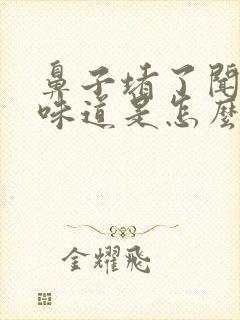 鼻子堵了闻
味道是怎麽
金耀飛